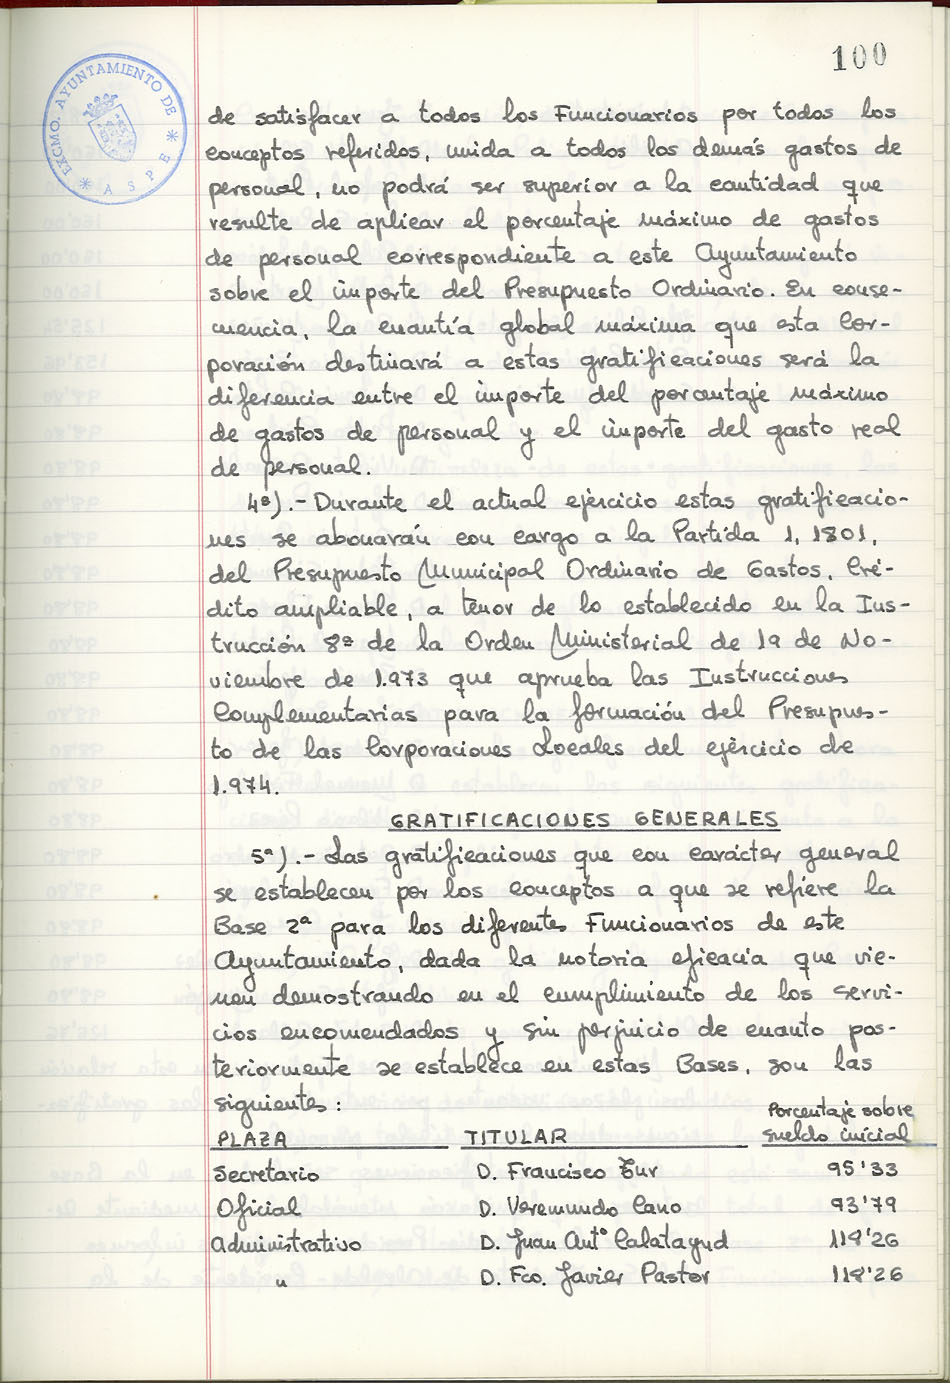 100
EXCMO. AYUNTAMIENTO DE
* ASPE *
de satisfacer a todos los Funcionarios por todos los
conceptos referidos, unida a todos los demás gastos de
personal, no podrá ser superior a la cantidad que
resulte de aplicar el porcentaje máximo de gastos
de personal correspondiente a este Ayuntamiento
sobre el importe del Presupuesto Ordinario. En conse-
cuencia, la cuantía global máxima que esta Cor-
poración destinará a estas gratificaciones será la
diferencia entre el importe del porcentaje máximo
de gastos de personal y el importe del gasto real
de personal.
4ª).- Durante el actual ejercicio estas gratificacio-
nes se abonarán con cargo a la Partida 1, 1801,
del Presupuesto Municipal Ordinario de Gastos, Cré-
dito ampliable, a tenor de lo establecido en la Ins-
trucción 8ª de la Orden Ministerial de 19 de No-
viembre de 1.973 que aprueba las Instrucciones
Complementarias para la formación del Presupues-
to de las Corporaciones Locales del ejercicio de
1.974.
GRATIFICACIONES GENERALES
5ª).- Las gratificaciones que con carácter general
se establecen por los conceptos a que se refiere la
Base 2ª para los diferentes Funcionarios de este
Ayuntamiento, dada la notoria eficacia que vie-
nen demostrando en el cumplimiento de los servi-
cios encomendados y sin perjuicio de cuanto pos-
teriormente se establece en estas Bases, son las
siguientes:
PLAZA TITULAR Porcentaje sobre sueldo inicial
Secretario D. Francisco Tur 95'33
Oficial D. Veremundo Cano 93'79
Administrativo D. Juan Antº Calatayud 118'26
" D. Fco. Javier Pastor 118'26